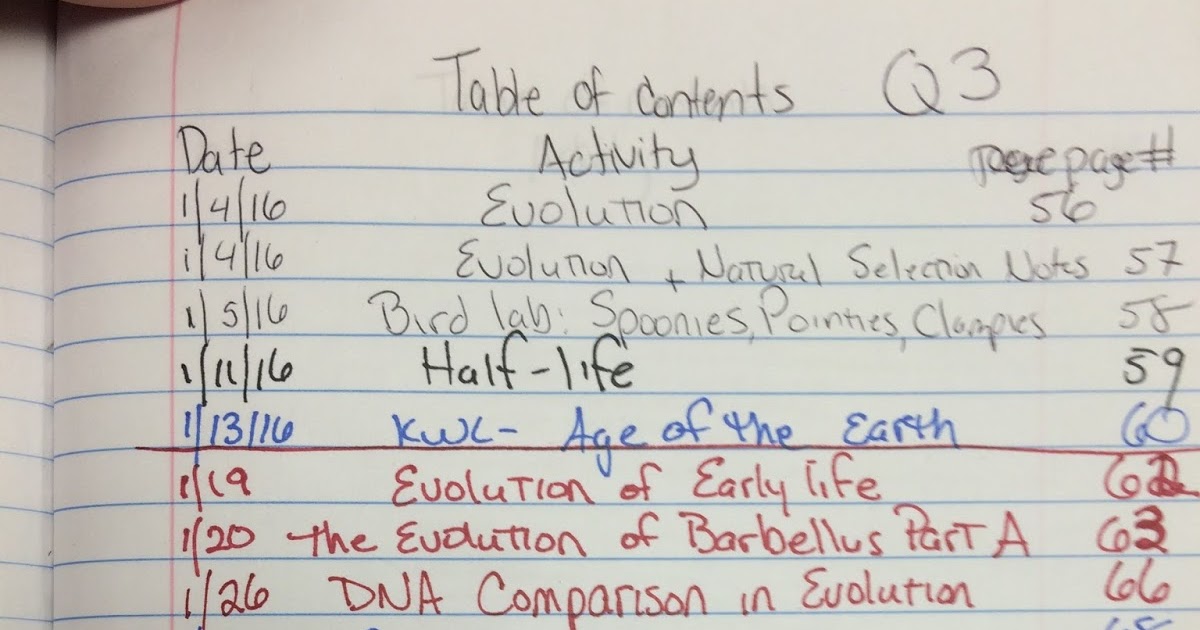 Table of Contents Q3
Date Activity page #
1/4/16 Evolution 56
1/4/16 Evolution + Natural Selection Notes 57
1/5/16 Bird lab: Spoonies, Pointies, Clampies 58
1/11/16 Half-life 59
1/13/16 KWL- Age of the Earth 60
1/19 Evolution of Early life
1/20 the Evolution of Barbellus Part A 63
1/26 DNA Comparison in Evolution 66